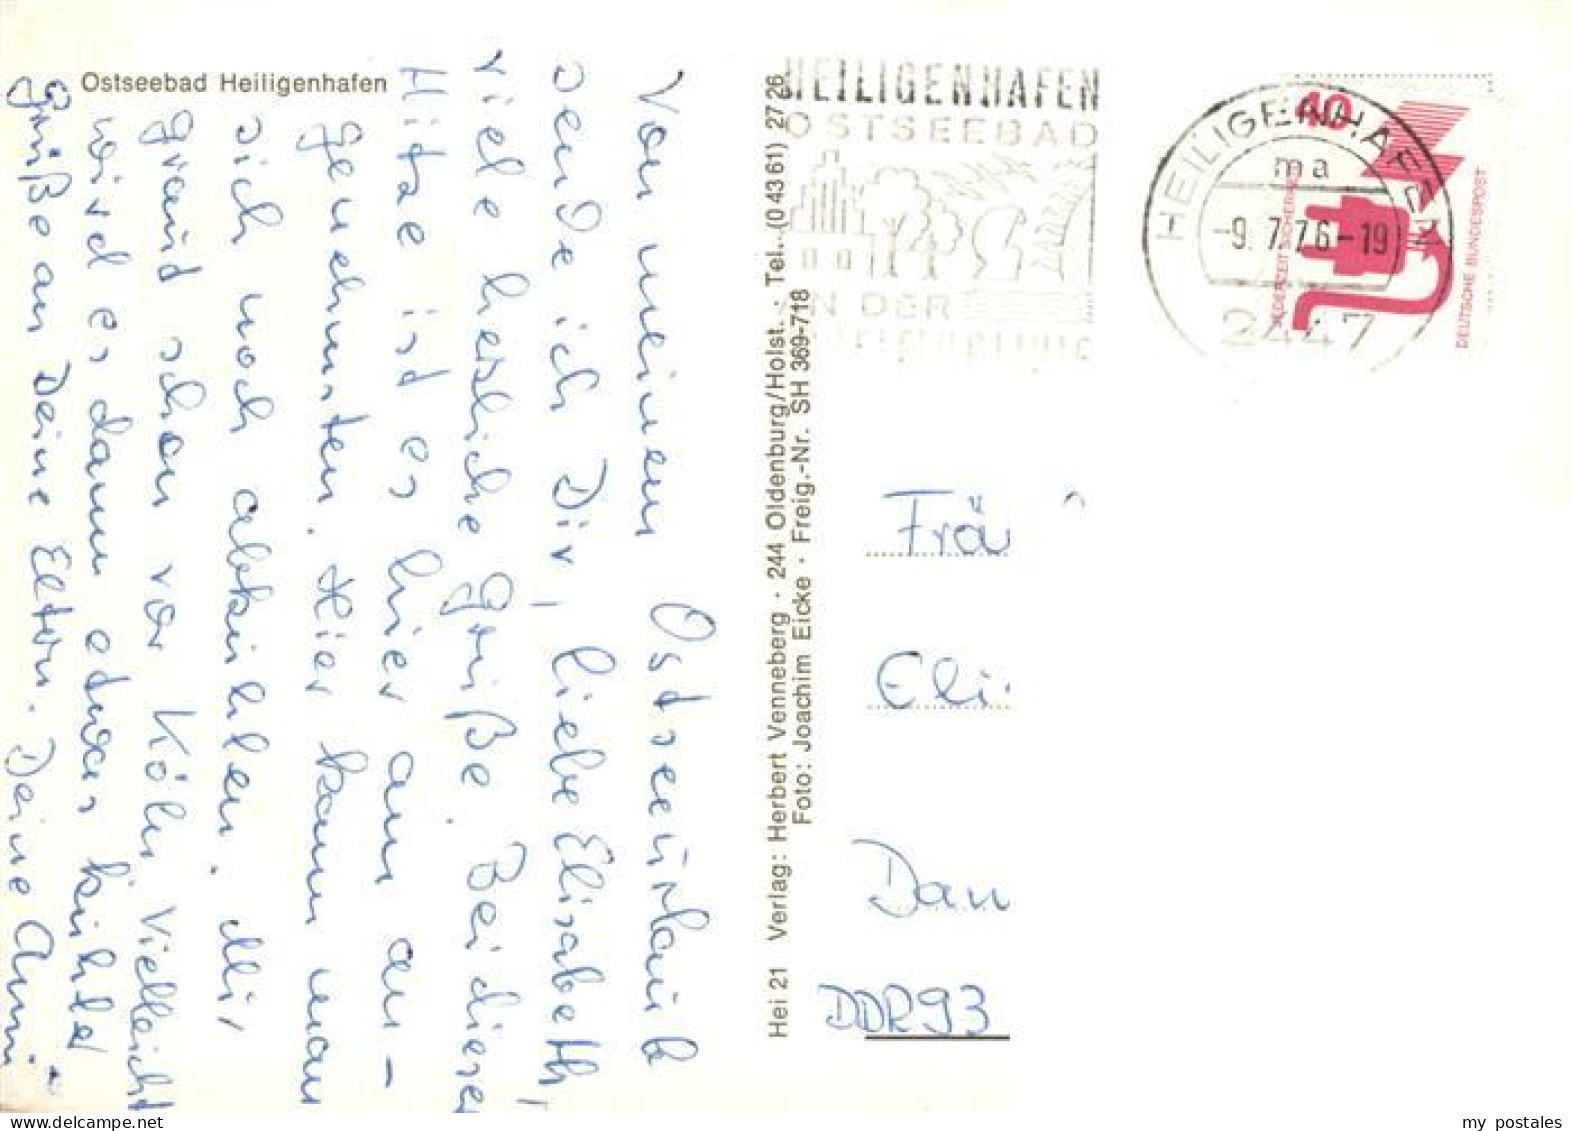 Ostseebad Heiligenhafen
Von meinem Ostseeurlaub
sende ich Dir, liebe Elisabeth,
viele herzliche Grüße. Bei dieser
Hitze ist es hier am an-
genehmsten. Hier kann man
sich noch abkühlen. Mir
graut schon vor Köln. Vielleicht
wird es dann etwas kühler
Grüße an Deine Eltern. Deine Anni
Hei 21 Verlag: Herbert Venneberg · 244 Oldenburg/Holst. · Tel. (0 43 61) 27 26
Foto: Joachim Eicke · Freig.-Nr. SH 369-718
HEILIGENHAFEN
OSTSEEBAD
AN DER
HEILIGENHAFEN
ma
-9.7.76-19
2447
40
JEDERZEIT SICHERHEIT
DEUTSCHE BUNDESPOST
Frä
Eli
Dam
DDR 93
my postales